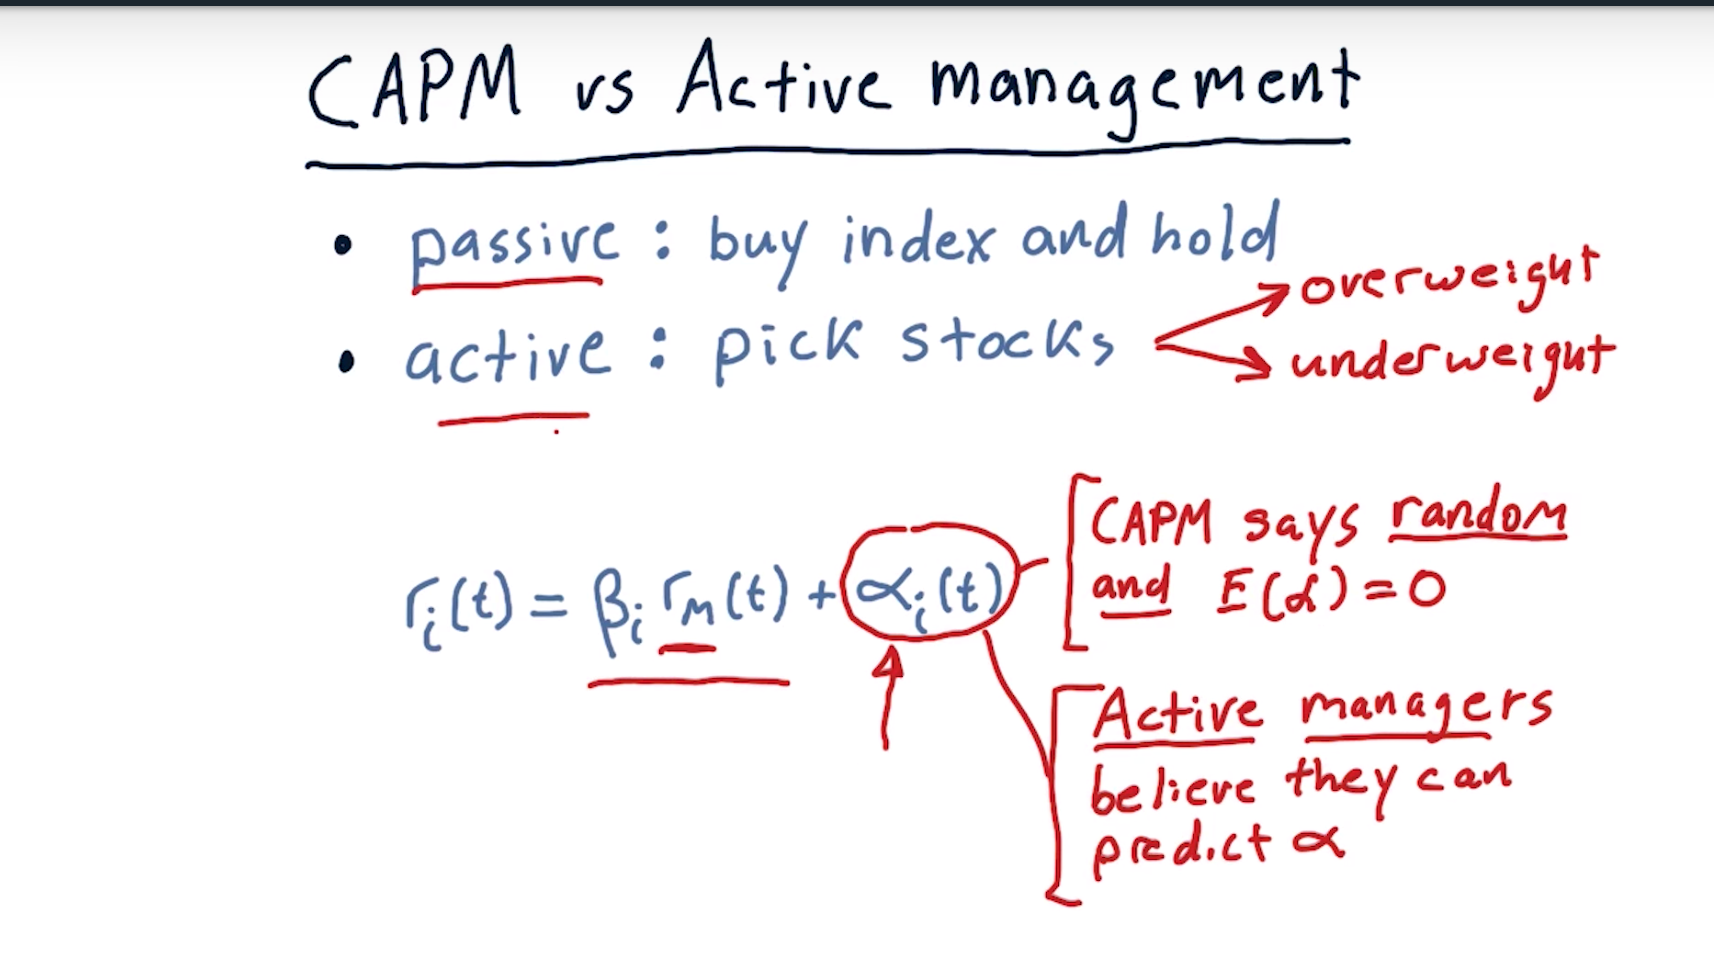 CAPM vs Active management
• passive : buy index and hold
• active : pick stocks
overweight
underweight
rᵢ(t) = βᵢ rₘ(t) + αᵢ(t)
CAPM says random
and E(α) = 0
Active managers
believe they can
predict α